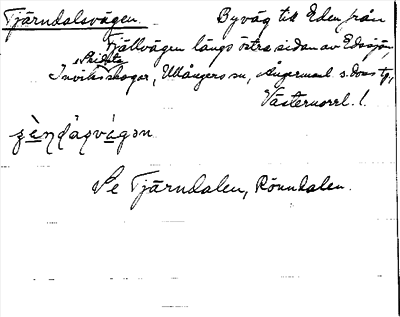 Tjärndalsvägen. Byväg till Eden från
Fjällvägen längs östra sidan av Edssjön,
skifte
Inviks skogar, Ullångers sn, Ångermanl. s. doms tg,
Västernorrl. l.
Se Tjärndalen, Rönndalen.